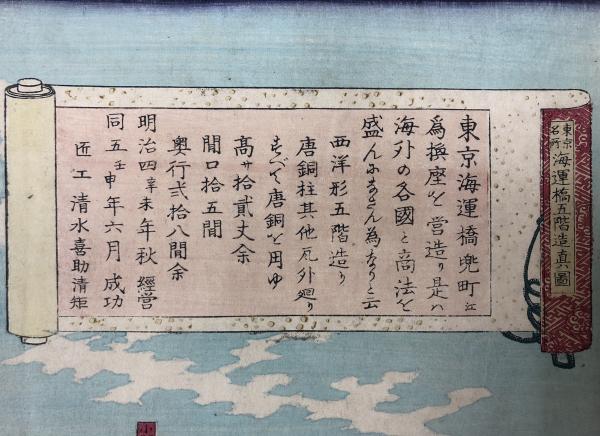 東京名所 海運橋五階造真圖
東京海運橋兜町江
為換座を営造り是ハ
海外の各國と商法を
盛んにせん為なりと云
西洋形五階造り
唐銅柱其他瓦外廻り
すべて唐銅を用ゆ
髙サ拾貳丈余
間口拾五間
奥行弐拾八間余
明治四辛未年秋 經営
同五壬申年六月 成功
匠工 清水喜助清矩
小